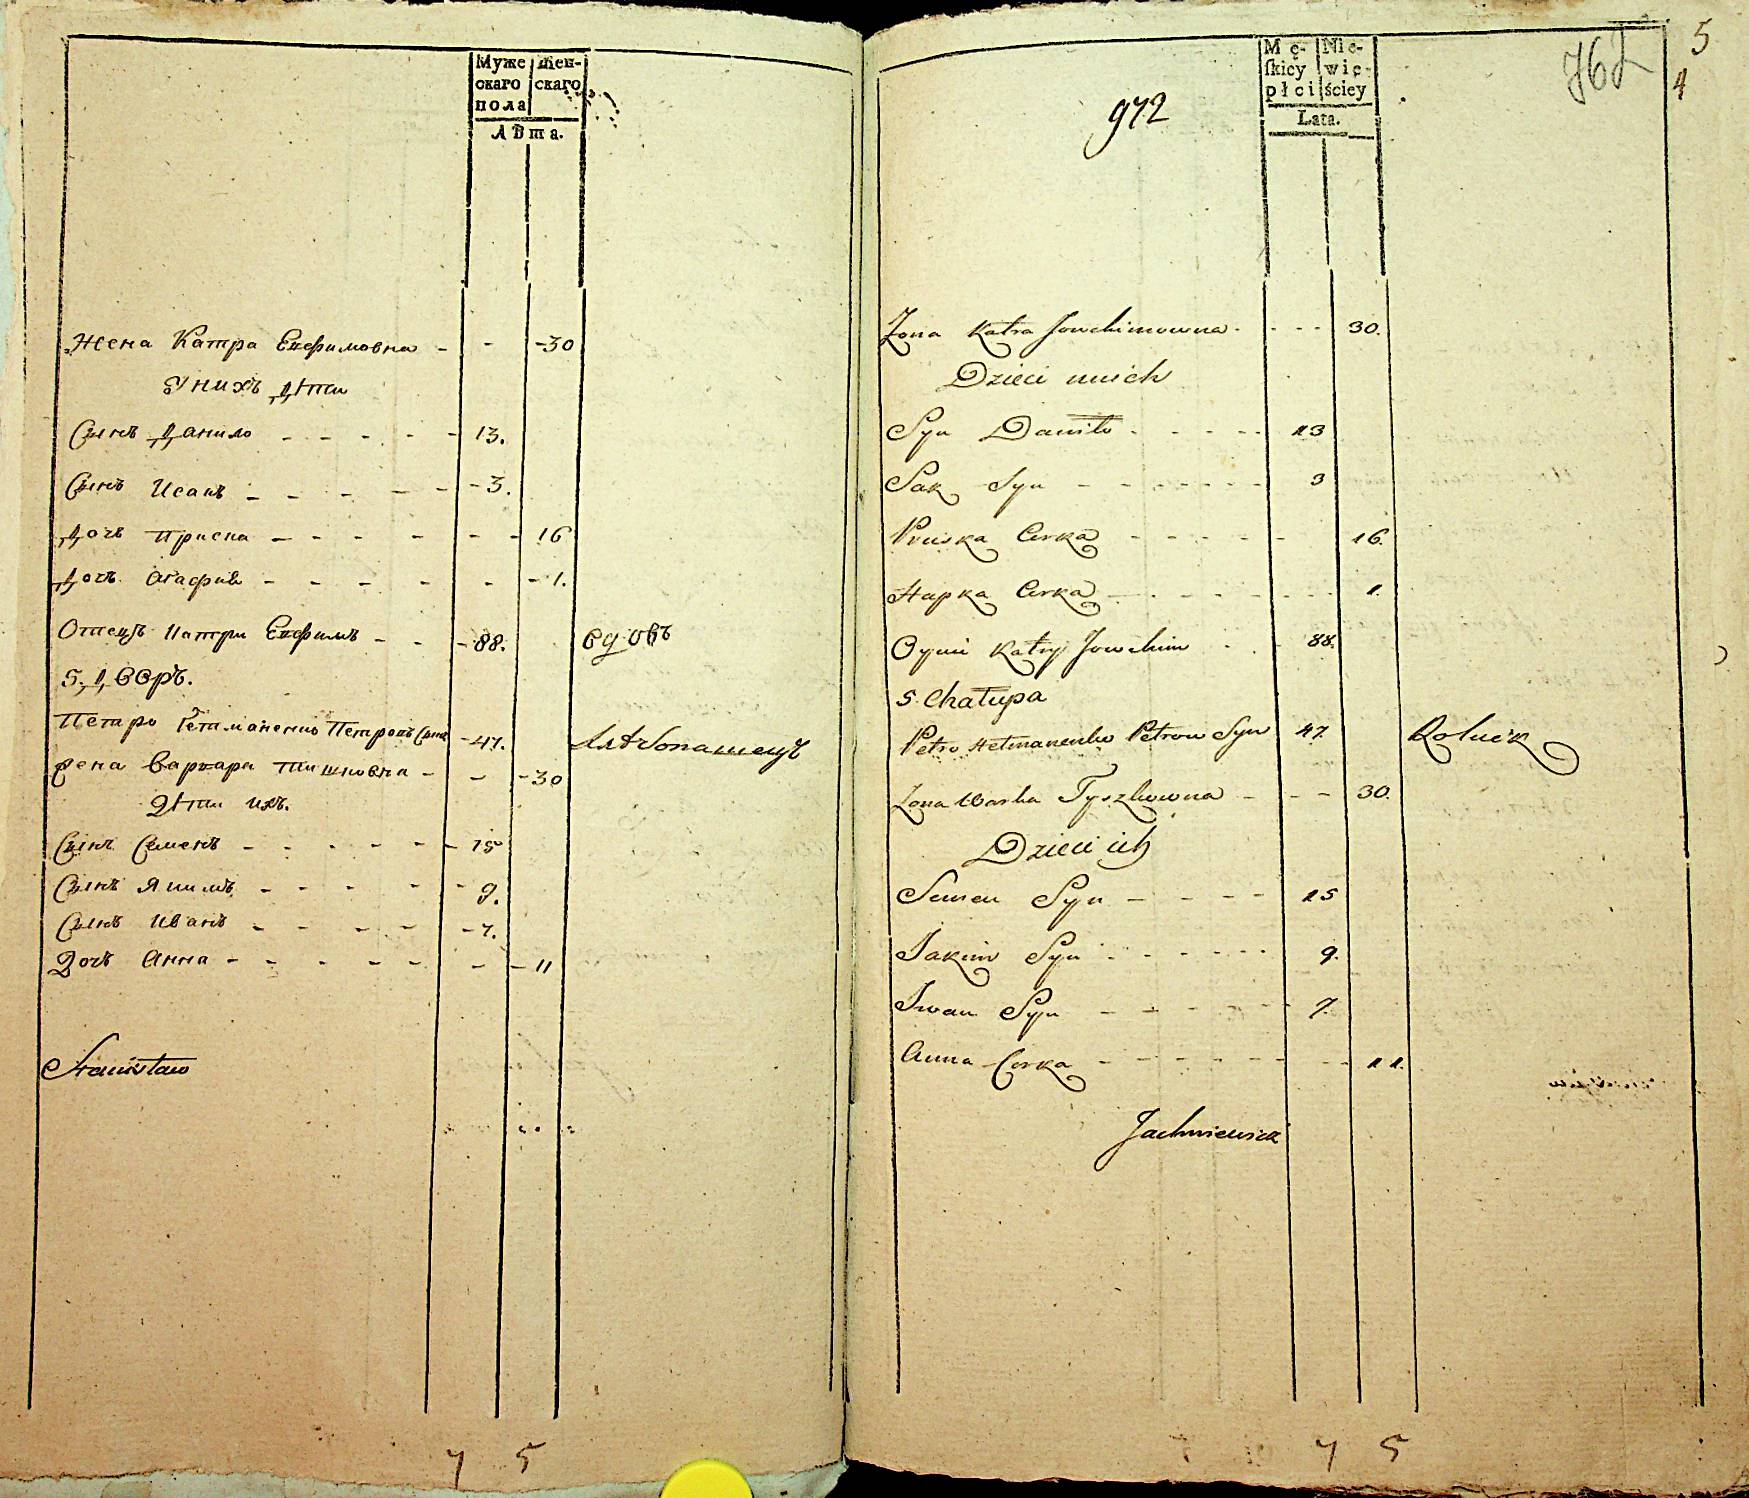 Муже Жен-
скаго скаго
пола
Лѣта.
Жена Катра Евфимовна - - - 30
У нихъ дѣти
Сынъ Данило - - - - - 13.
Сынъ Исакъ - - - - - 3.
Дочь Приска - - - - - - 16
Дочь Агафия - - - - - - 1.
Отецъ Катри Евфимъ - - - 88. вдовъ
5. Дворъ.
Петро Гетманенко Петровъ Сынъ - 47. хлѣбопашецъ
Жена Варвара Тишковна - - - 30
Дѣти ихъ.
Сынъ Семенъ - - - - - - 15
Сынъ Якимъ - - - - - 9.
Сынъ Иванъ - - - - - 7.
Дочь Анна - - - - - - - 11
Stanisław
7 5
5
4
972
Mę- Nie-
ſkiey wię-
płci ściey
Lata.
Żona Katra Jowchimowna - - - - 30.
Dzieci u nich
Syn Daniło - - - - - 13
Sak Syn - - - - - - 3
Pryska Corka - - - - - 16.
Hapka Corka - - - - - - 1.
Oyciec Katry Jowchim - - - 88.
5. Chałupa
Petro Hetmanenko Petrow Syn 47. Rolnik
Żona Warka Tyszkowna - - - 30.
Dzieci ich
Semen Syn - - - - 15
Jakim Syn - - - - - - 9.
Iwan Syn - - - - - 7.
Anna Corka - - - - - - - - 11.
Jachniewicz
7 5